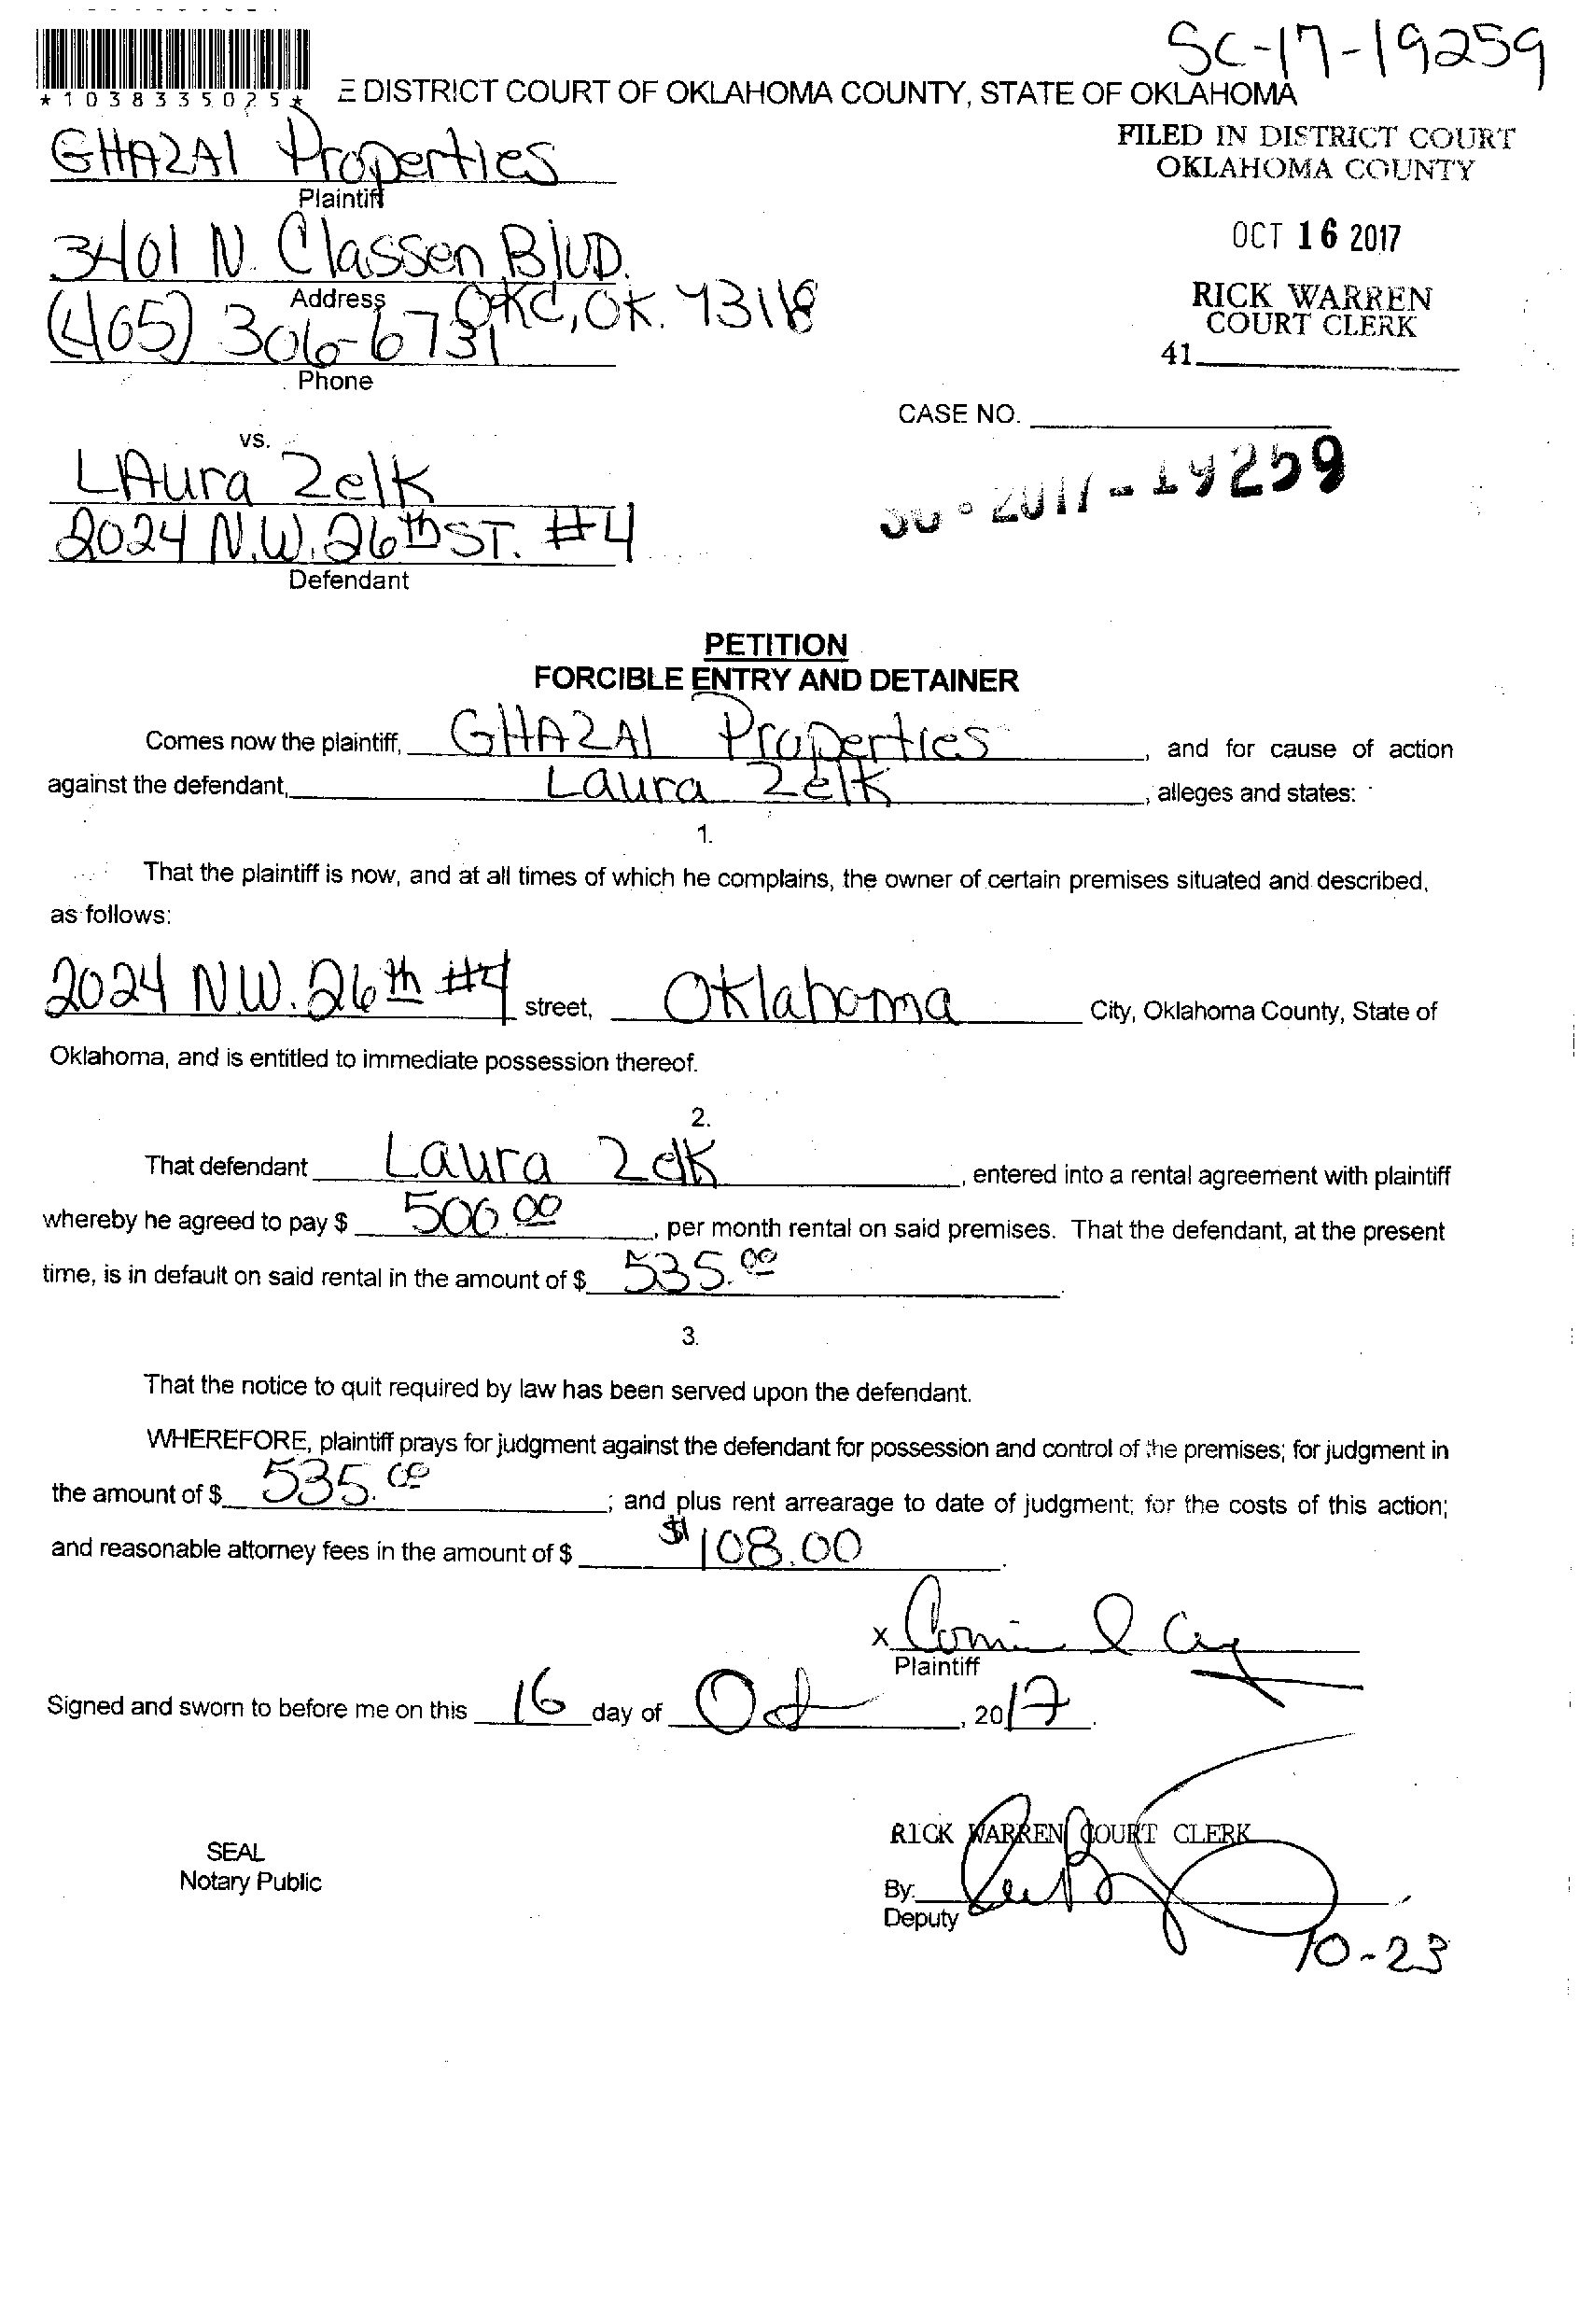 SC-17-19259
*1038335025*
E DISTRICT COURT OF OKLAHOMA COUNTY, STATE OF OKLAHOMA
FILED IN DISTRICT COURT
OKLAHOMA COUNTY
GHAZAl Properties
Plaintiff
OCT 16 2017
3401 N. Classen BlvD.
Address
OKC, OK. 73118
RICK WARREN
COURT CLERK
(405) 306-6731
41
Phone
CASE NO.
vs.
SC-2017-19259
LAura Zelk
2024 N.W. 26th ST. #4
Defendant
PETITION
FORCIBLE ENTRY AND DETAINER
Comes now the plaintiff, GHAZAl Properties, and for cause of action
against the defendant, Laura Zelk, alleges and states:
1.
That the plaintiff is now, and at all times of which he complains, the owner of certain premises situated and described,
as follows:
2024 N.W. 26th #4 street, Oklahoma City, Oklahoma County, State of
Oklahoma, and is entitled to immediate possession thereof.
2.
That defendant Laura Zelk, entered into a rental agreement with plaintiff
whereby he agreed to pay $ 500.00, per month rental on said premises. That the defendant, at the present
time, is in default on said rental in the amount of $ 535.00.
3.
That the notice to quit required by law has been served upon the defendant.
WHEREFORE, plaintiff prays for judgment against the defendant for possession and control of the premises; for judgment in
the amount of $ 535.00; and plus rent arrearage to date of judgment; for the costs of this action;
and reasonable attorney fees in the amount of $ $108.00.
X
Plaintiff
Signed and sworn to before me on this 16 day of Oct, 2017.
RICK WARREN COURT CLERK
SEAL
Notary Public
By:
Deputy
10-23